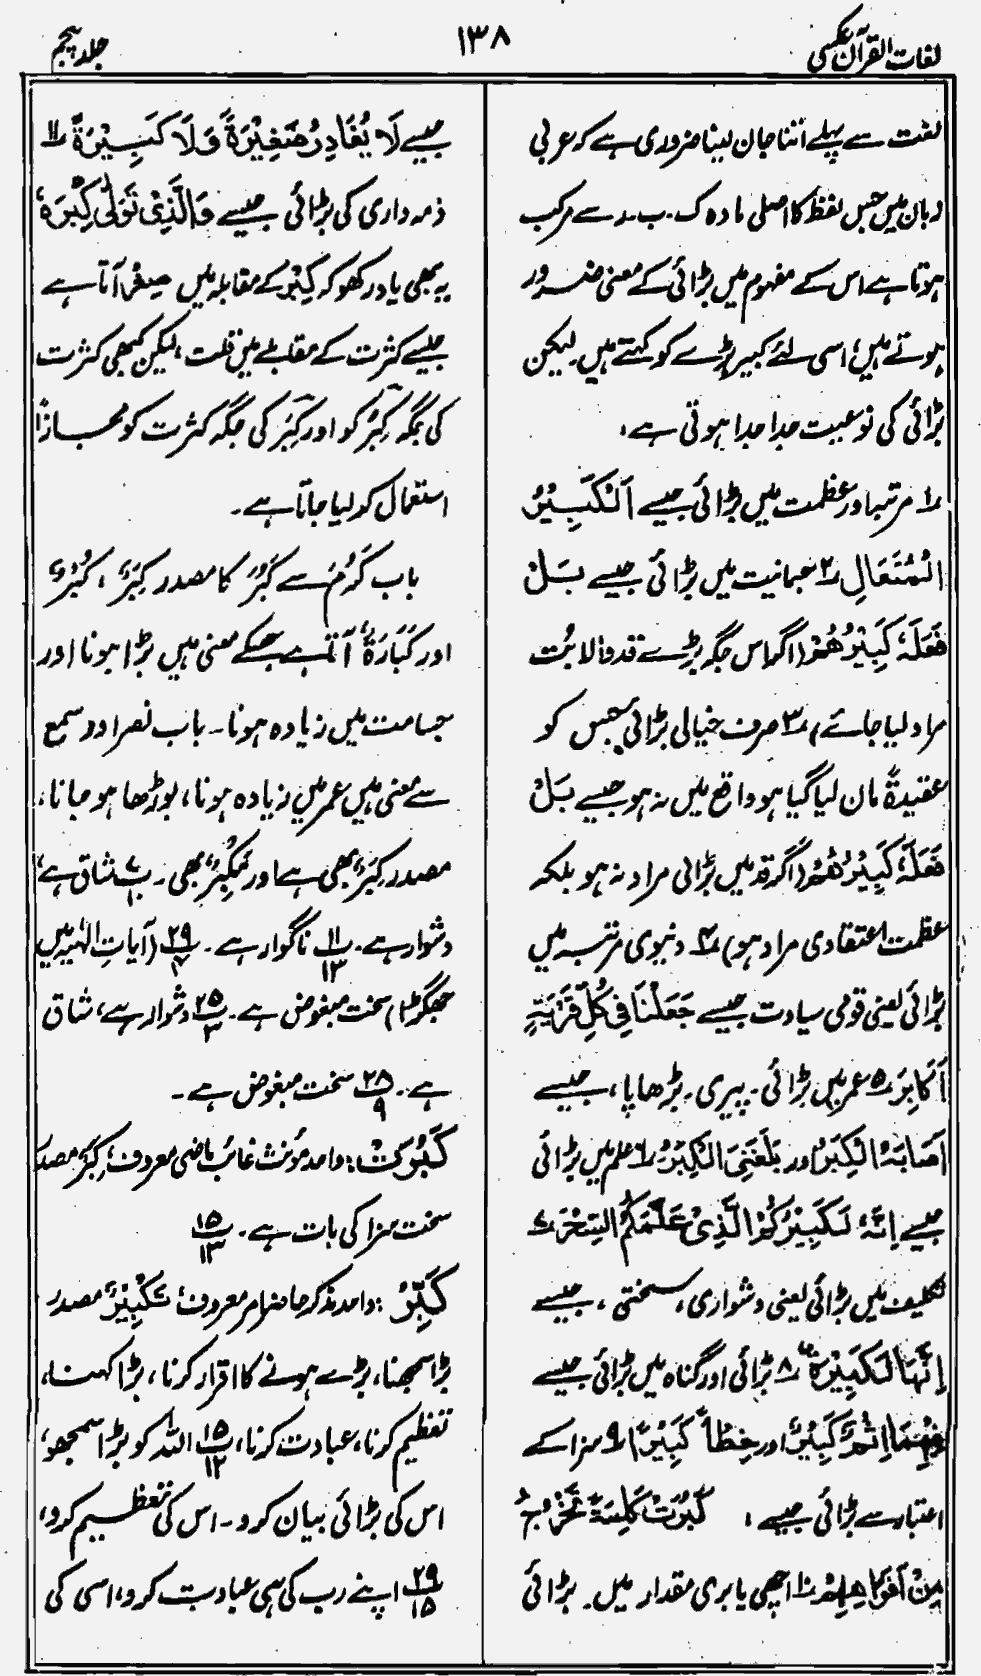 لغات القرآن عکسی
۱۳۸
جلد پنجم
لغت سے پہلے اتنا جان لینا ضروری ہے کہ عربی
زبان میں جس لفظ کا اصلی مادہ ک۔ ب۔ ر سے مرکب
ہوتا ہے اس کے مفہوم میں بڑائی کے معنی ضرور
ہوتے ہیں، اسی لئے کبیر بڑے کو کہتے ہیں۔ لیکن
بڑائی کی نوعیت جدا جدا ہوتی ہے،
۱ مرتبہ اور عظمت میں بڑائی جیسے اَلْکَبِیْرُ
الْمُتَعَالِ ۲ جسمانیت میں بڑائی جیسے بَلْ
فَعَلَہٗ کَبِیْرُھُمْ (اگر اس جگہ بڑے قد والا بُت
مراد لیا جائے) ۳ صرف خیالی بڑائی جس کو
عقیدۃً مان لیا گیا ہو واقع میں نہ ہو جیسے بَلْ
فَعَلَہٗ کَبِیْرُھُمْ (اگر قد میں بڑائی مراد نہ ہو بلکہ
عظمت اعتقادی مراد ہو) ۴ دنیوی مرتبہ میں
بڑائی یعنی قومی سیادت جیسے جَعَلْنَا فِیْ کُلِّ قَرْیَۃٍ
اَکَابِرَ ۵ عمر میں بڑائی۔ پیری۔ بڑھاپا، جیسے
اَصَابَہُ الْکِبَرُ اور بَلَغَنِیَ الْکِبَرُ ۶ علم میں بڑائی
جیسے اِنَّہٗ لَکَبِیْرُکُمُ الَّذِیْ عَلَّمَکُمُ السِّحْرَ ۷
تکلیف میں بڑائی یعنی دشواری، سختی، جیسے
اِنَّھَا لَکَبِیْرَۃٌ ۸ بڑائی اور گناہ میں بڑائی جیسے
فِیْھِمَا اِثْمٌ کَبِیْرٌ اور خِطْأً کَبِیْرًا ۹ سزا کے
اعتبار سے بڑائی جیسے، کَبُرَتْ کَلِمَۃً تَخْرُجُ
مِنْ اَفْوَاھِھِمْ ۱۰ اچھی یا بری مقدار میں۔ بڑائی
جیسے لَا یُغَادِرُ صَغِیْرَۃً وَّلَا کَبِیْرَۃً ۱۱
ذمہ داری کی بڑائی جیسے وَالَّذِیْ تَوَلّٰی کِبْرَہٗ
یہ بھی یاد رکھو کہ کِبَرٌ کے مقابلہ میں صِغَر آتا ہے
جیسے کثرت کے مقابلے میں قلت، لیکن کبھی کثرت
کی جگہ کِبَرٌ کو اور کِبَرٌ کی جگہ کثرت کو مجازًا
استعمال کر لیا جاتا ہے۔
باب کَرُمَ سے کَبُرَ کا مصدر کِبَرٌ، کُبْرٌ
اور کَبَارَۃٌ آتا ہے جس کے معنی ہیں بڑا ہونا اور
جسامت میں زیادہ ہونا۔ باب نصر اور سمع
سے معنی ہیں عمر میں زیادہ ہونا، بوڑھا ہو جانا،
مصدر کِبَرٌ بھی ہے اور مَکْبِرٌ بھی۔ پ ۷/۱ شاق ہے،
دشوار ہے۔ پ ۱۱/۱۳ ناگوار ہے۔ پ ۲۹/۷ (آیاتِ الٰہیہ میں
جھگڑنا) سخت مبغوض ہے۔ پ ۲۵/۳ دشوار ہے، شاق
ہے۔ پ ۲۸/۹ سخت مبغوض ہے۔
کَبُرَتْ: واحد مؤنث غائب ماضی معروف، کِبَرٌ مصدر
سخت سزا کی بات ہے۔ پ ۱۵/۱۳
کَبِّرْ: واحد مذکر حاضر امر معروف، تَکْبِیْرٌ مصدر
بڑا سمجھنا، بڑے ہونے کا اقرار کرنا، بڑا کہنا،
تعظیم کرنا، عبادت کرنا، پ ۱۵/۱۲ اللہ کو بڑا سمجھو،
اس کی بڑائی بیان کرو۔ اس کی تعظیم کرو،
پ ۲۹/۱۵ اپنے رب کی ہی عبادت کرو، اسی کی